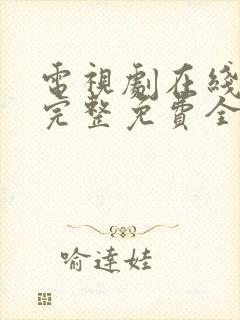 電視劇在綫
完整免費全
喻達娃